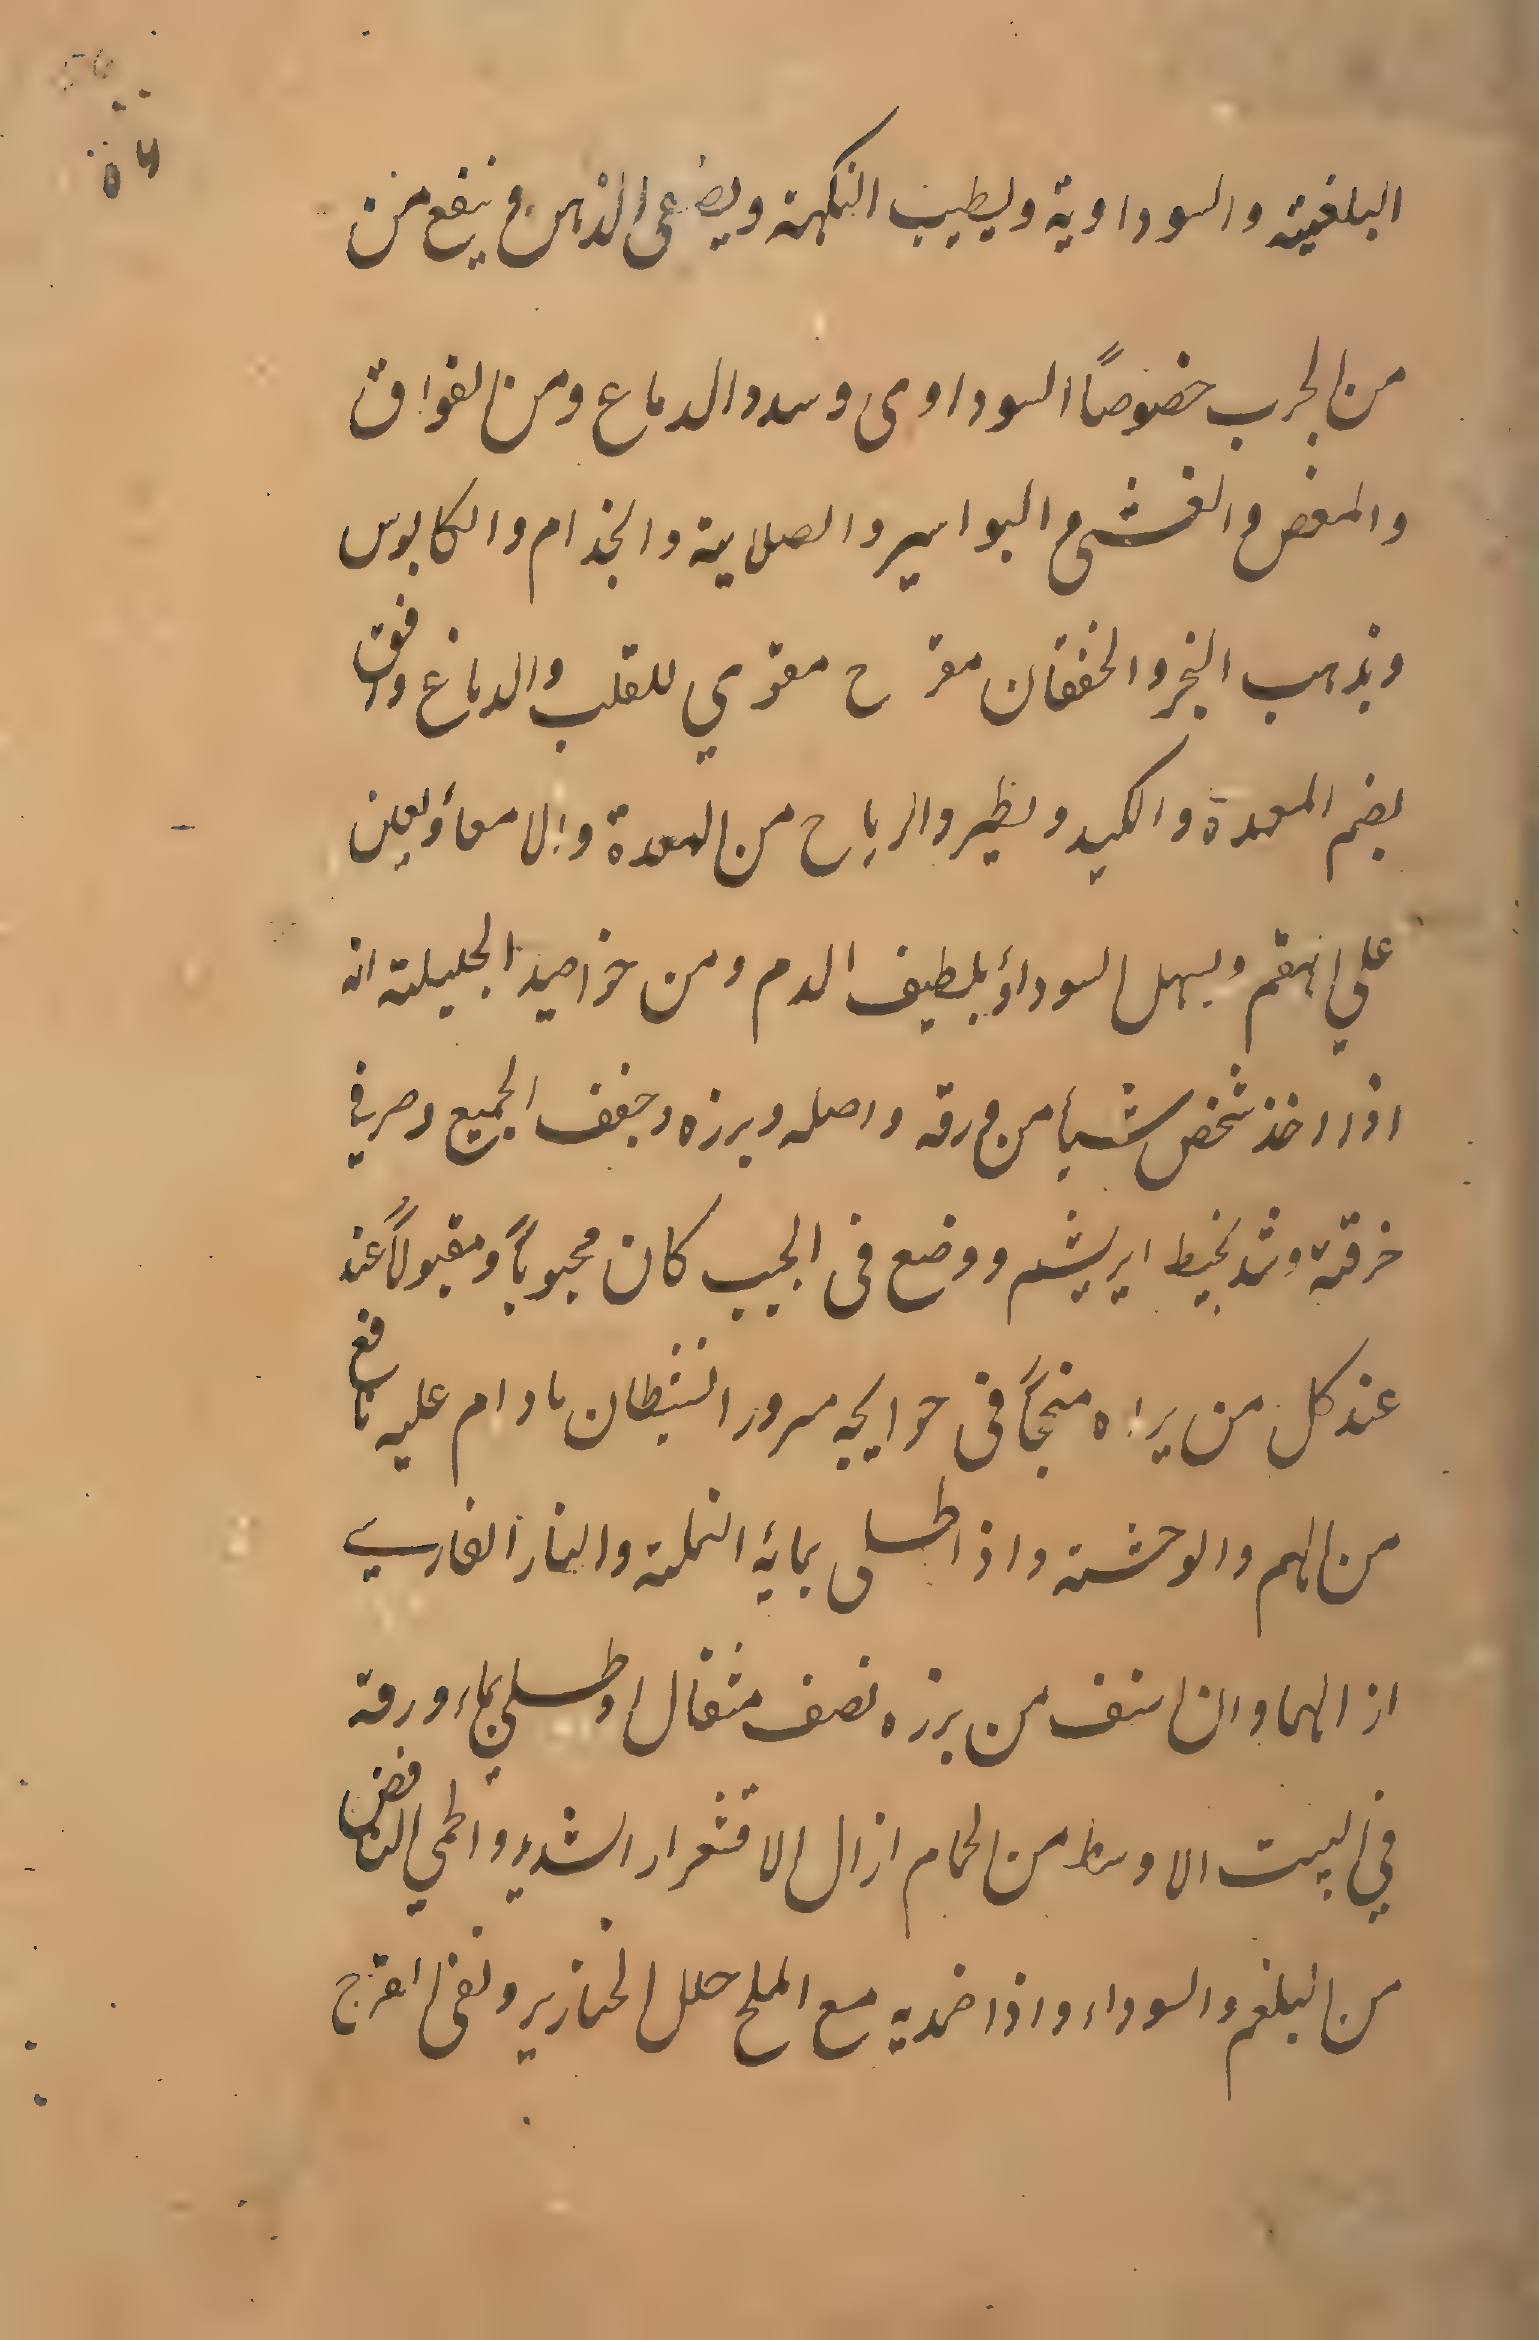 ٥٦
البلغميته والسوداوية ويطيب النكهته ويضعى الذهن و ينفع من
من الجرب خصوصاً السوداوى وسدد الدماع ومن الفواق
والمغص والغشى و البواسير والصلابية والجذام والكابوس
وتذهب البخر والخفقان مفرّح مقوّي للقلب والدماغ وافق
بضم المعدة والكبد ويطير والرياح من المعدة والامعاؤ يعين
على الهقم ويسهل السوداؤ بلطيف الدم ومن خواصيه الجليلته انه
اذاا اخذ شخص شيأ من ورقه واصله وبرزه وجفف الجميع وصر في
خرقته وشد بخيط ابريشم ووضع فى الجيب كان محبوباً ومقبولاً عند
عند كل من يراه منجحاً فى حوايجه مسرور النشطان مادام عليه نافع
من الهم والوحشته واذا طلى بمايه النملته والنار الفارسي
ازالهما وان استف من برزه نصف مثقال او طلي بماء ورقه
في البيت الاوسط من الحمام ازال الاقشعرار الشديد والحمي النافض
من البلغم والسوداء واذا ضمد به مع الملح حلل الخنازير ونفى القرح